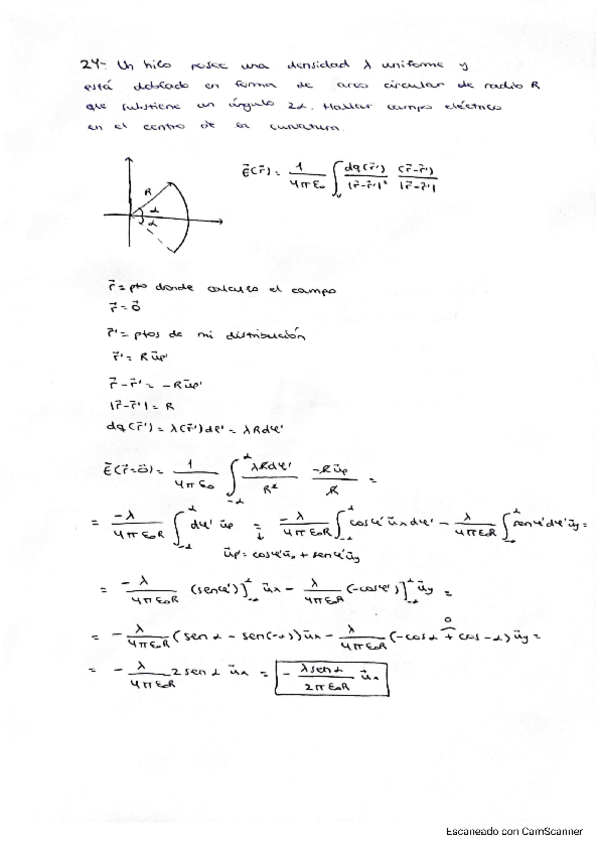 24- Un hilo posee una densidad λ uniforme y
está doblado en forma de arco circular de radio R
que subtiene un ángulo 2α. Hallar campo eléctrico
en el centro de la curvatura.
R
α
α
E⃗(r⃗) = 1/(4πε₀) ∫ dq(r⃗')/|r⃗-r⃗'|² (r⃗-r⃗')/|r⃗-r⃗'|
r⃗ = pto donde calculo el campo
r⃗ = 0⃗
r⃗' = ptos de mi distribución
r⃗' = R u⃗ρ'
r⃗-r⃗' = -R u⃗ρ'
|r⃗-r⃗'| = R
dq(r⃗') = λ(r⃗')dl' = λRdφ'
E⃗(r⃗=0⃗) = 1/(4πε₀) ∫_{-α}^{α} λRdφ'/R² -R u⃗ρ/R =
= -λ/(4πε₀R) ∫_{-α}^{α} dφ' u⃗ρ = -λ/(4πε₀R) ∫_{-α}^{α} cosφ' u⃗x dφ' - λ/(4πε₀R) ∫_{-α}^{α} senφ' dφ' u⃗y =
↓
u⃗ρ = cosφ' u⃗x + senφ' u⃗y
= -λ/(4πε₀R) (senφ')]_{-α}^{α} u⃗x - λ/(4πε₀R) (-cosφ')]_{-α}^{α} u⃗y =
= -λ/(4πε₀R) (sen α - sen(-α)) u⃗x - λ/(4πε₀R) (-cosα + cos -α) u⃗y =
0
= -λ/(4πε₀R) 2 sen α u⃗x = -λ sen α/(2πε₀R) u⃗x
Escaneado con CamScanner